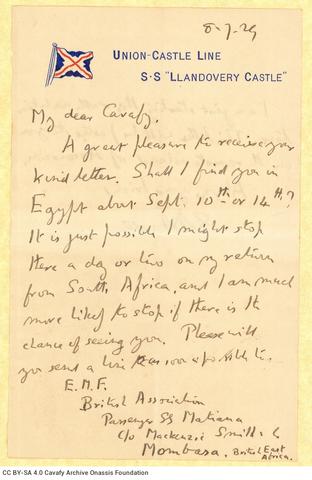 8-7-29
UNION-CASTLE LINE
S·S "LLANDOVERY CASTLE"
My dear Cavafy,
A great pleasure to receive your
kind letter. Shall I find you in
Egypt about Sept. 10th or 14th?
It is just possible I might stop
there a day or two on my return
from South Africa, and I am much
more likely to stop if there is the
chance of seeing you. Please will
you send a line as soon as possible to.
E.M.F.
British Association
Passenger SS Matiana
c/o Mackenzie Smith &
Mombasa, British East
Africa.
CC BY-SA 4.0 Cavafy Archive Onassis Foundation